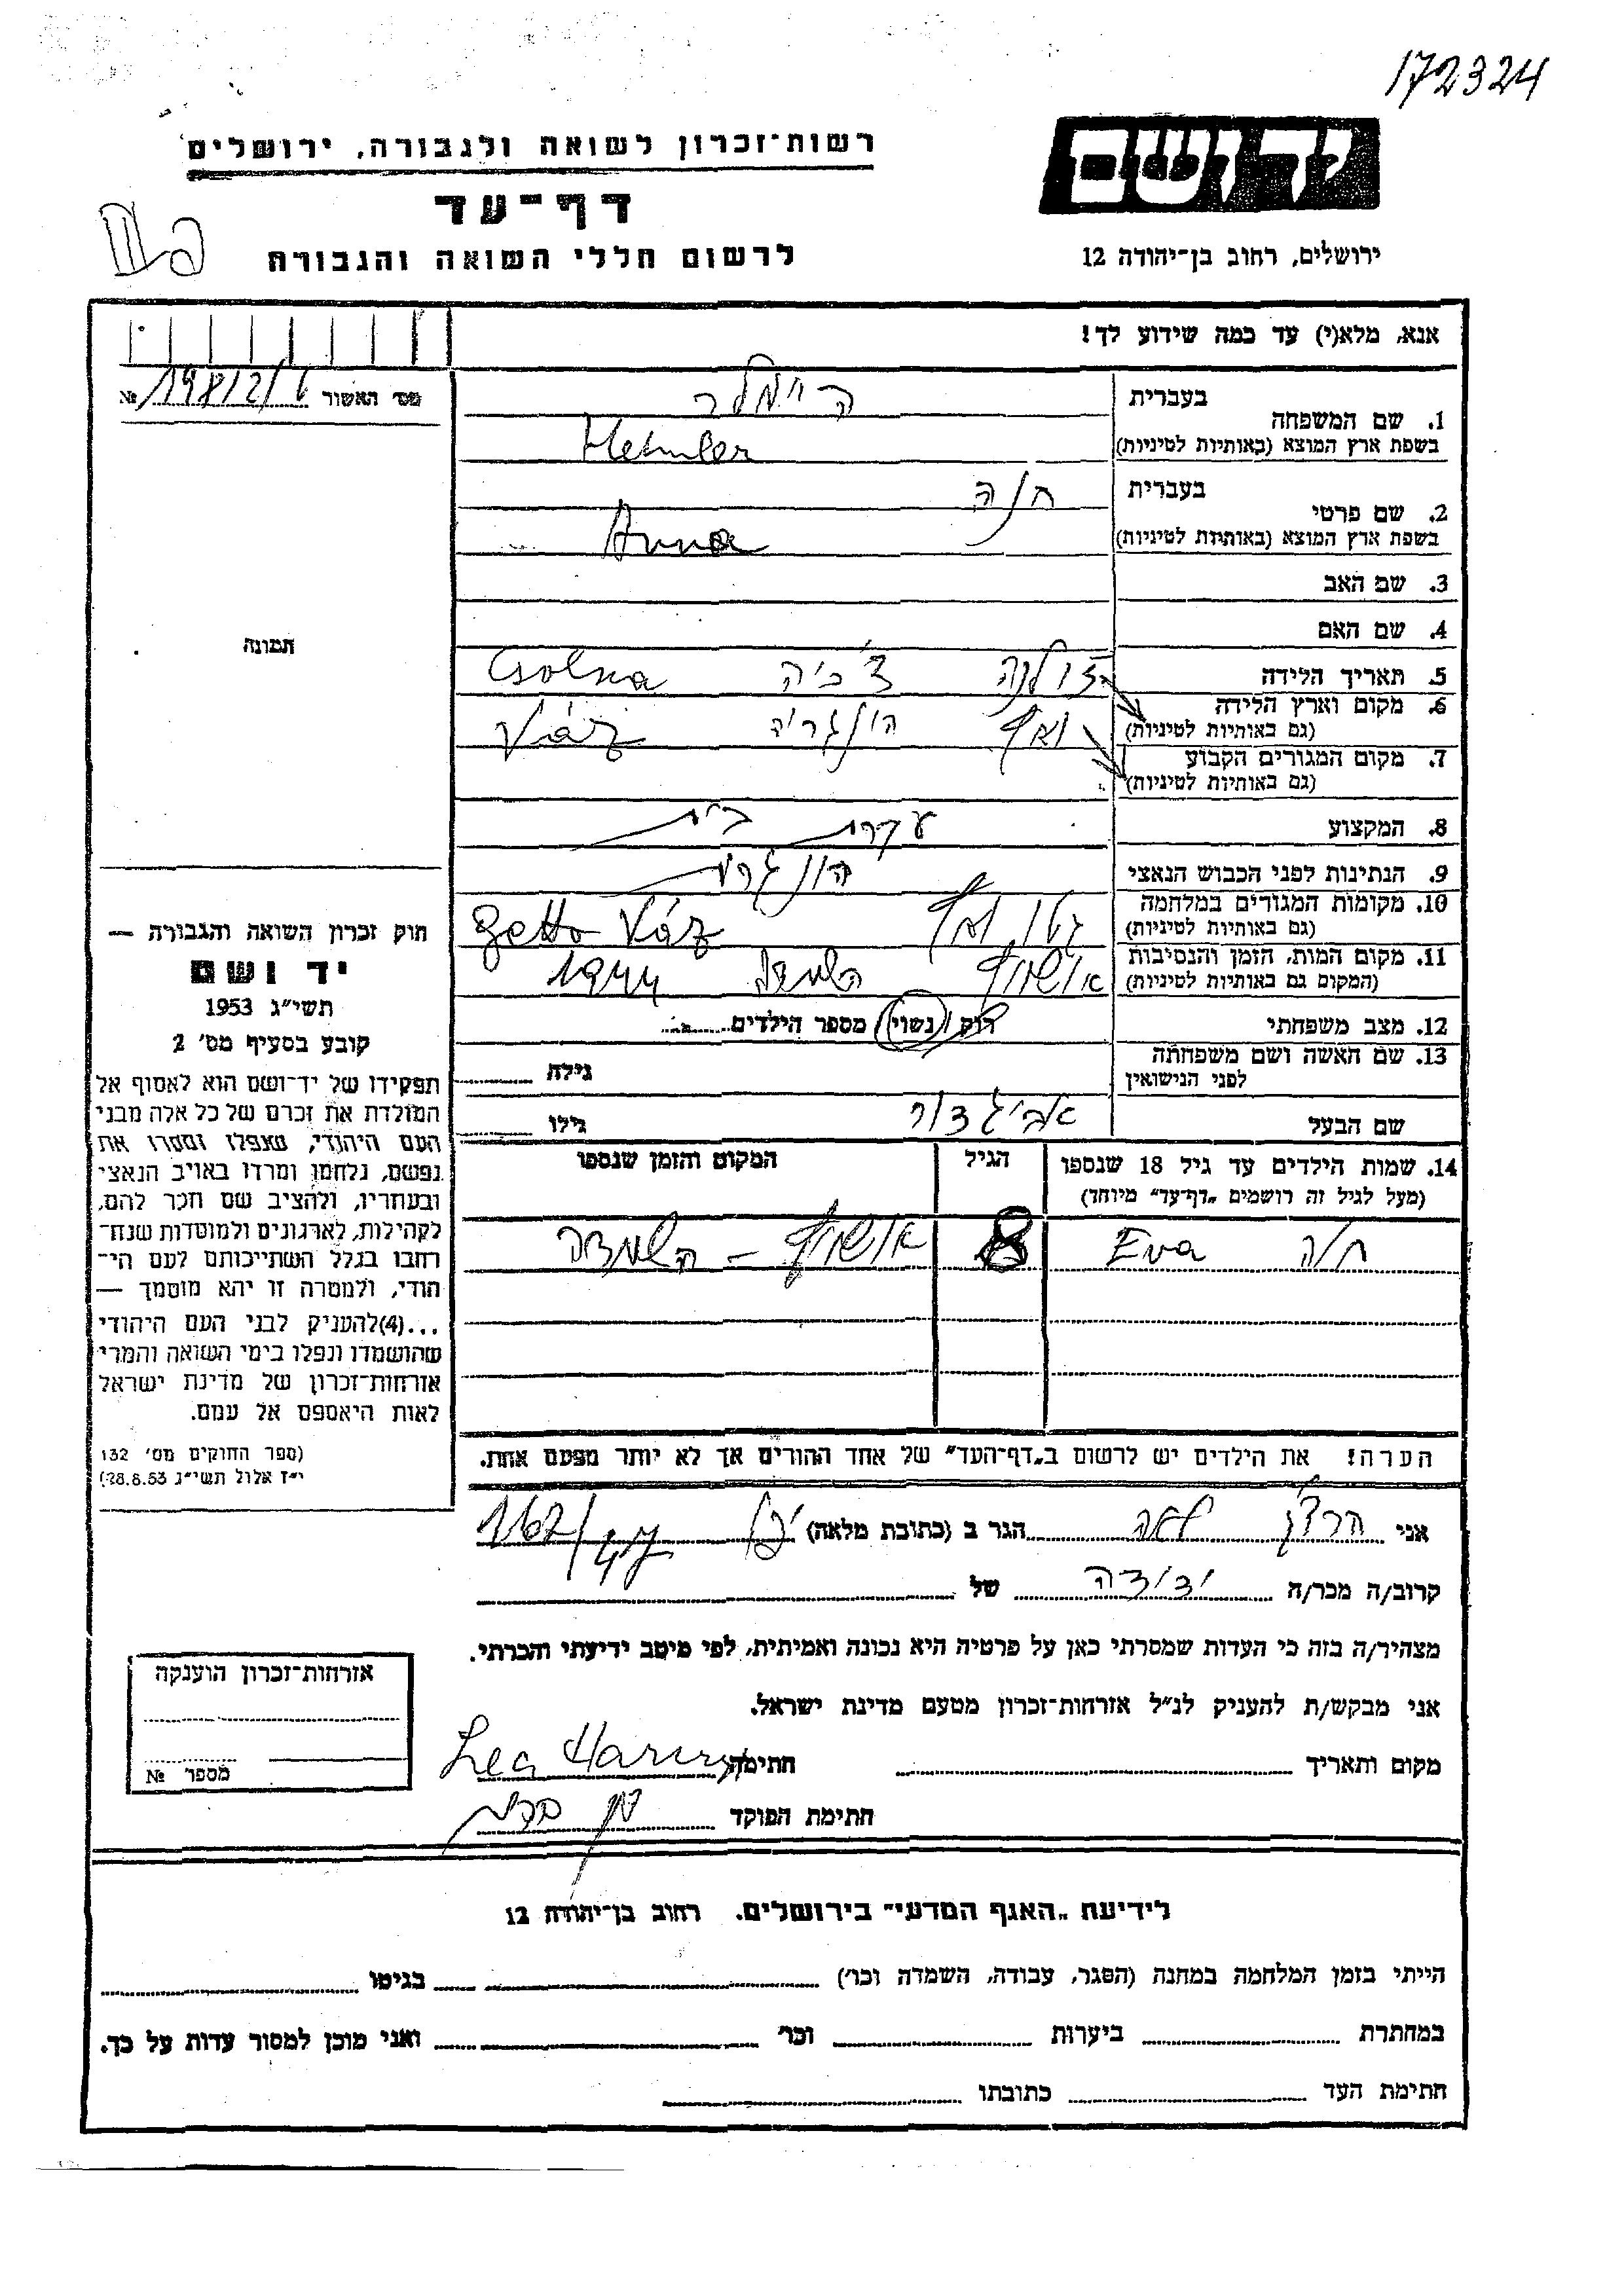 172324
יד ושם
רשות־זכרון לשואה ולגבורה, ירושלים
דף־עד
לרשום חללי השואה והגבורה
ירושלים, רחוב בן־יהודה 12
אנא, מלא(י) עד כמה שידוע לך!
מס׳ האשור №
1. שם המשפחה בעברית היימלר
בשפת ארץ המוצא (באותיות לטיניות) Heimler
2. שם פרטי בעברית חנה
בשפת ארץ המוצא (באותיות לטיניות) Anna
3. שם האב
4. שם האם
5. תאריך הלידה
6. מקום וארץ הלידה צ׳כיה Csolna
(גם באותיות לטיניות)
7. מקום המגורים הקבוע הונגריה Váz
(גם באותיות לטיניות)
8. המקצוע עקרת בית
9. הנתינות לפני הכבוש הנאצי
10. מקומות המגורים במלחמה גטו Getto Váz
(גם באותיות לטיניות)
11. מקום המות, הזמן והנסיבות אושויץ 1944
(המקום גם באותיות לטיניות)
12. מצב משפחתי רוק / נשוי / מספר הילדים
13. שם האשה ושם משפחתה גילה
לפני הנישואין
שם הבעל אביגדור גילו
14. שמות הילדים עד גיל 18 שנספו הגיל המקום והזמן שנספו
(מעל לגיל זה רושמים „דף־עד״ מיוחד)
חוה Eva 8 אושויץ – השמדה
הערה! את הילדים יש לרשום ב„דף־העד״ של אחד ההורים אך לא יותר מפעם אחת.
אני לאה הגר ב (כתובת מלאה) 167/47
קרוב/ה מכר/ה ידידה של
מצהיר/ה בזה כי העדות שמסרתי כאן על פרטיה היא נכונה ואמיתית, לפי מיטב ידיעתי והכרתי.
אני מבקש/ת להעניק לנ״ל אזרחות־זכרון מטעם מדינת ישראל.
מקום ותאריך חתימה Lea
חתימת הפוקד
תמונה
חוק זכרון השואה והגבורה —
יד ושם
תשי״ג 1953
קובע בסעיף מס׳ 2
תפקידו של יד־ושם הוא לאסוף אל
המולדת את זכרם של כל אלה מבני
העם היהודי, שנפלו ומסרו את
נפשם, נלחמו ומרדו באויב הנאצי
ובעוזריו, ולהציב שם וזכר להם,
לקהילות, לארגונים ולמוסדות שנח־
רבו בגלל השתייכותם לעם הי־
הודי, ולמטרה זו יהא מוסמך —
...(4)להעניק לבני העם היהודי
שהושמדו ונפלו בימי השואה והמרי
אזרחות־זכרון של מדינת ישראל
לאות היאספם אל עמם.
(ספר החוקים מס׳ 132
י״ז אלול תשי״ג 28.8.53)
אזרחות־זכרון הוענקה
מספר №
לידיעת „האגף המדעי״ בירושלים. רחוב בן־יהודה 12
הייתי בזמן המלחמה במחנה (הסגר, עבודה, השמדה וכו׳) בגיטו
במחתרת ביערות וכו׳ ואני מוכן למסור עדות על כך.
חתימת העד כתובתו